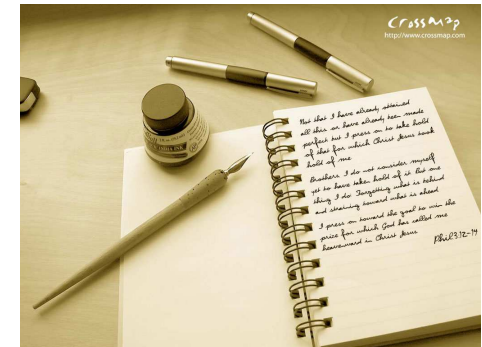 Crossmap
http://www.crossmap.com
Not that I have already attained
all this or have already been made
perfect but I press on to take hold
of that for which Christ Jesus took
hold of me
Brothers I do not consider myself
yet to have taken hold of it but one
thing I do Forgetting what is behind
and straining toward what is ahead
I press on toward the goal to win the
prize for which God has called me
heavenward in Christ Jesus
Phil 3:12-14